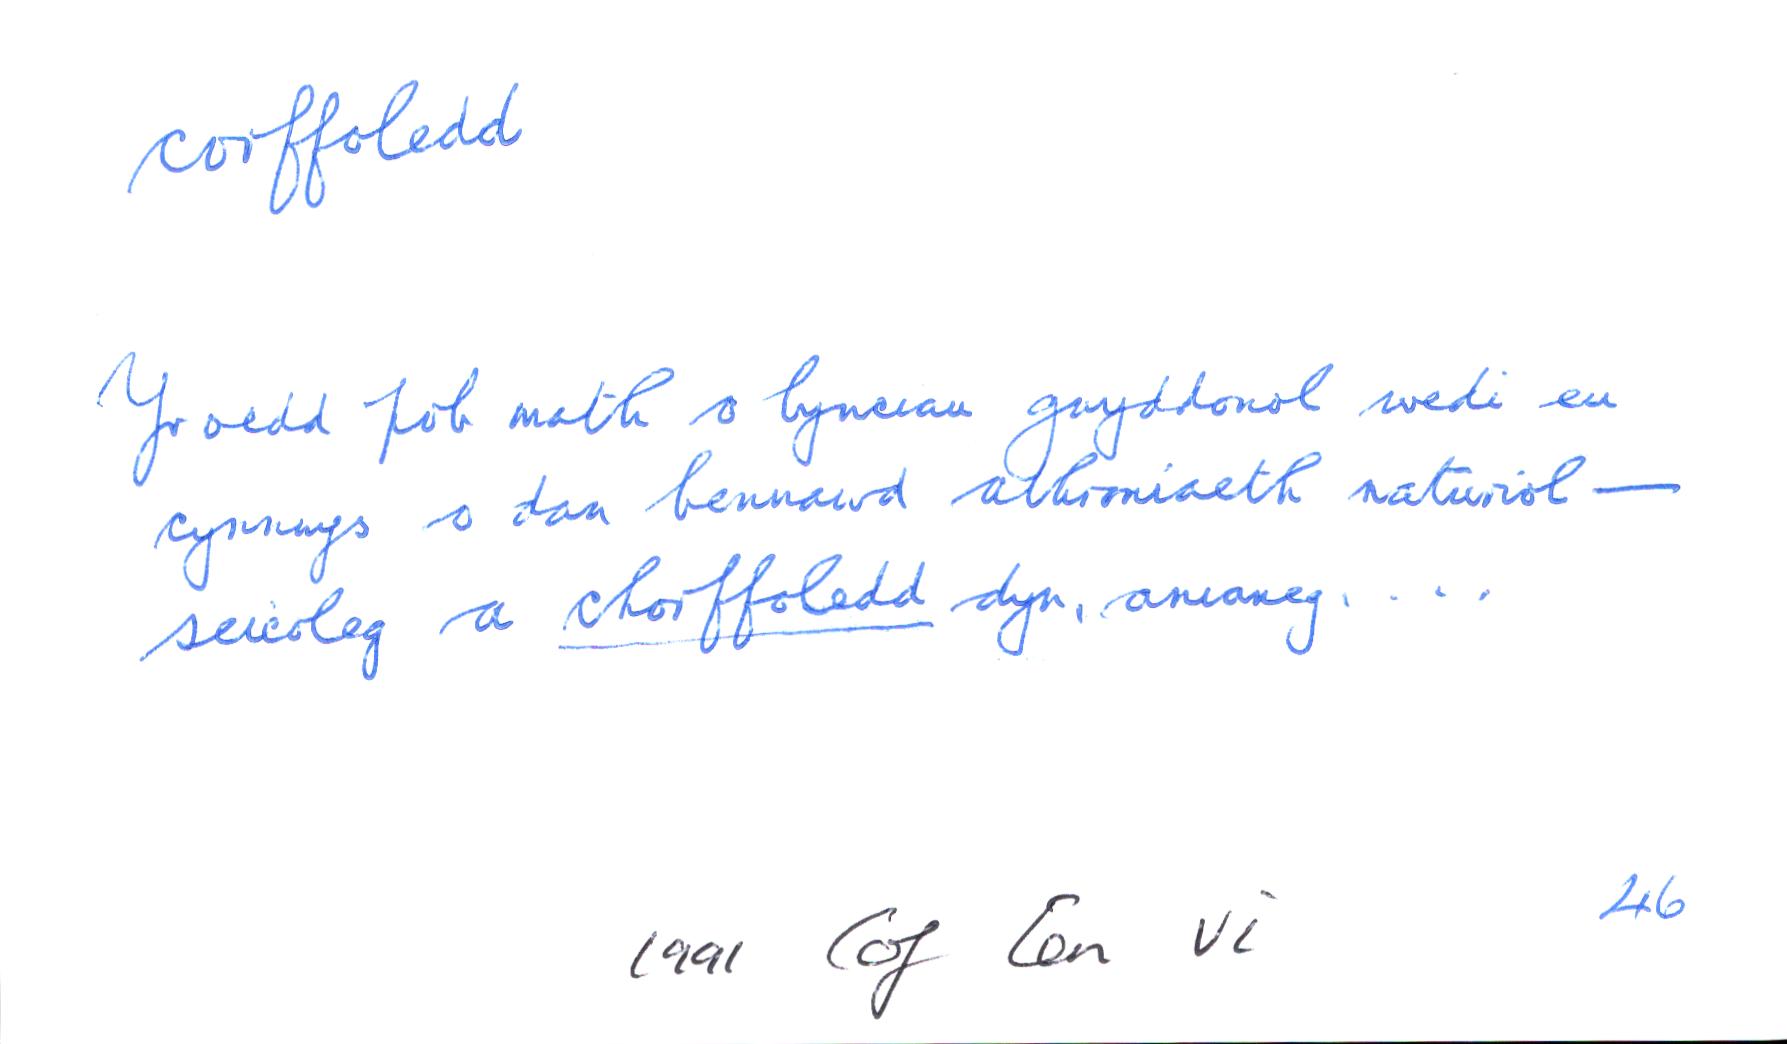 corffoledd
Yr oedd pob math o bynciau gwyddonol wedi eu
cynnwys o dan bennawd athroniaeth naturiol —
seicoleg a chorffoledd dyn, anianeg. . . .
46
1991 Cof Cen vi